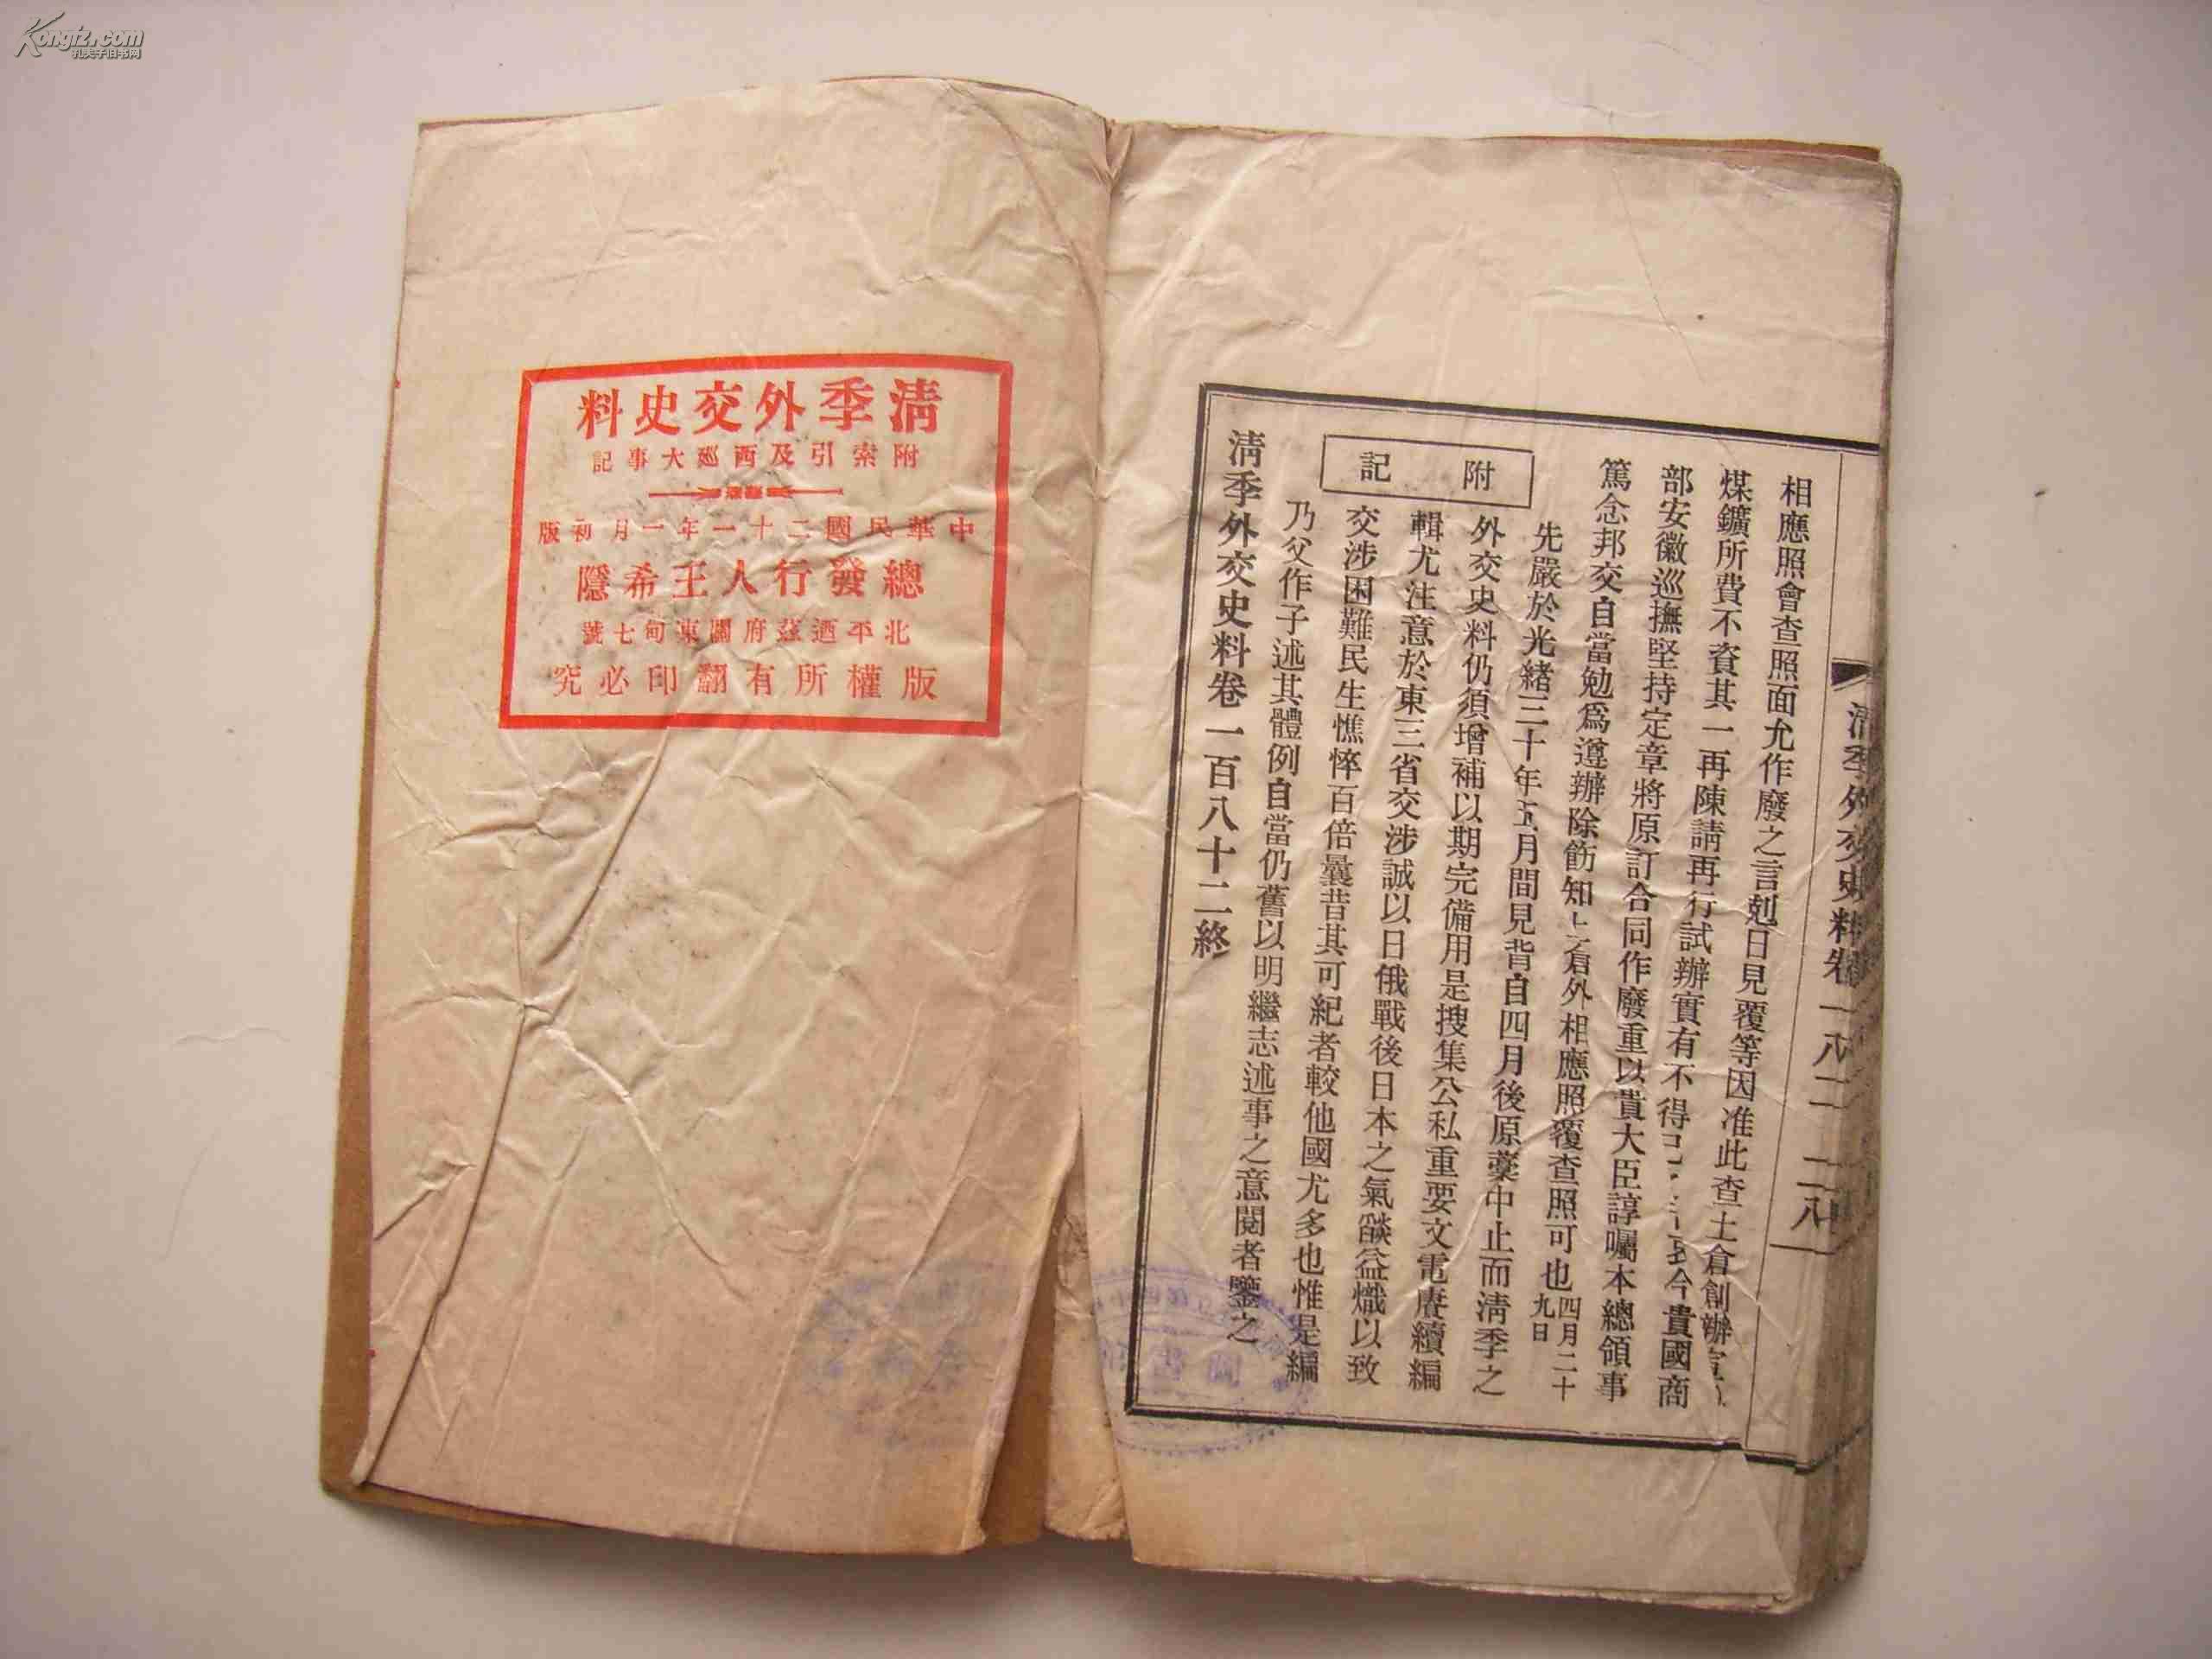 Kongfz.com
孔夫子旧书网
清季外交史料卷一八二 二八
相應照會查照面允作廢之言剋日見覆等因准此查土倉創辦宣
煤鑛所費不資其一再陳請再行試辦實有不得已 今貴國商
部安徽巡撫堅持定章將原訂合同作廢重以貴大臣諄囑本總領事
篤念邦交自當勉爲遵辦除飭知土倉外相應照覆查照可也 四月二十九日
附記
先嚴於光緒三十年五月間見背自四月後原藁中止而淸季之
外交史料仍須增補以期完備用是搜集公私重要文電賡續編
輯尤注意於東三省交涉誠以日俄戰後日本之氣燄益熾以致
交涉困難民生憔悴百倍曩昔其可紀者較他國尤多也惟是編
乃父作子述其體例自當仍舊以明繼志述事之意閱者鑒之
淸季外交史料卷一百八十二終
淸季外交史料
附索引及西巡大事記
中華民國二十一年一月初版
總發行人王希隱
北平迺茲府關東甸七號
版權所有翻印必究